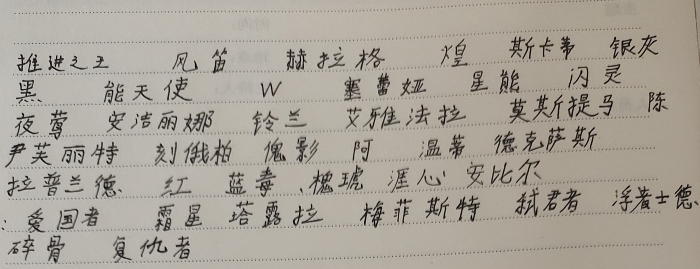 推进之王 风笛 赫拉格 煌 斯卡蒂 银灰
黑 能天使 W 塞雷娅 星熊 闪灵
夜莺 安洁丽娜 铃兰 艾雅法拉 莫斯提马 陈
尹芙丽特 刻俄柏 傀影 阿 温蒂 德克萨斯
拉普兰德、 红 蓝毒、槐琥 涯心 安比尔
: 爱国者 霜星 塔露拉 梅菲斯特 弑君者 浮士德、
碎骨 复仇者